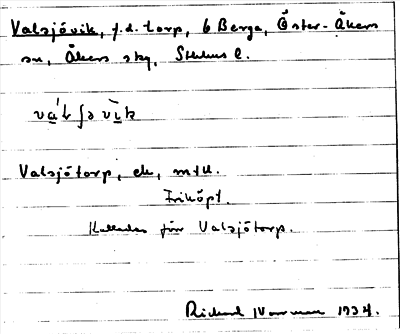 Valsjövik, f.d. torp, 6 Berga, Öster-Åkers
sn, Åkers skg, Sthlms l.
Valsjötorp, ek, mtl.
Friköpt.
Kallades förr Valsjötorp.
Rickard 1934.